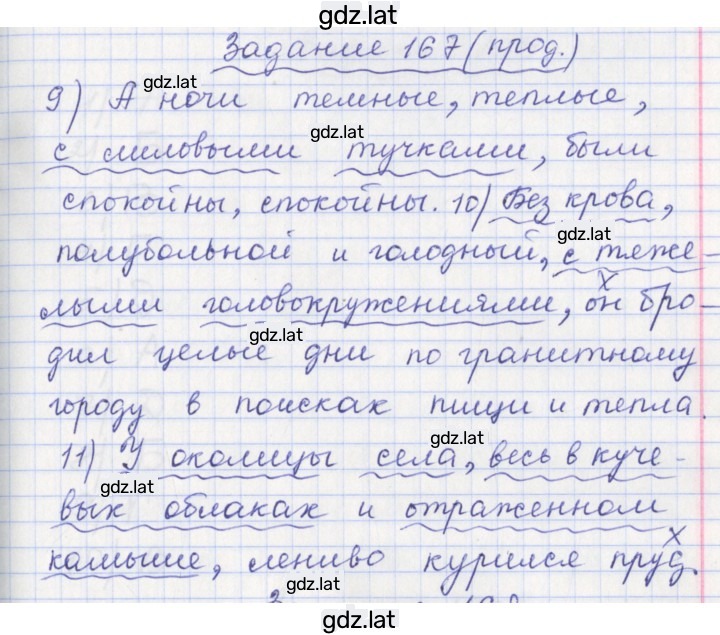 gdz.lat
Задание 167 (прод.)
gdz.lat
9) А ночи темные, теплые,
gdz.lat
с лиловыми тучками, были
спокойны, спокойны. 10) Без крова,
gdz.lat
полубольной и голодный, с тяже-
лыми головокружениями, он бро-
gdz.lat
дил целые дни по гранитному
городу в поисках пищи и тепла.
gdz.lat
11) У околицы села, весь в куче-
gdz.lat
вых облаках и отраженном
камыше, лениво курился пруд.
gdz.lat
gdz.lat